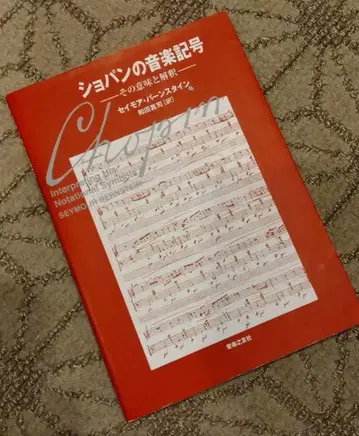 ショパンの音楽記号
―その意味と解釈―
セイモア・バーンスタイン 著
和田真司［訳］
Chopin
Interpreting His
Notational Symbols
SEYMOUR BERNSTEIN
音楽之友社